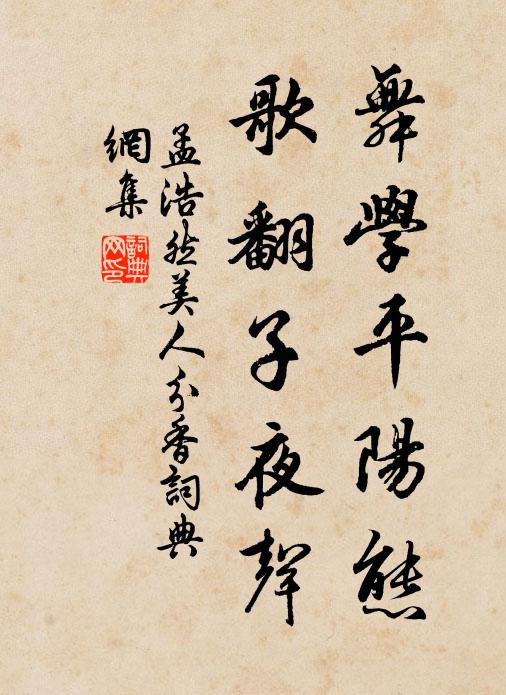 舞學平陽態
歌翻子夜聲
孟浩然美人分香詞典
網集
詞典
网印